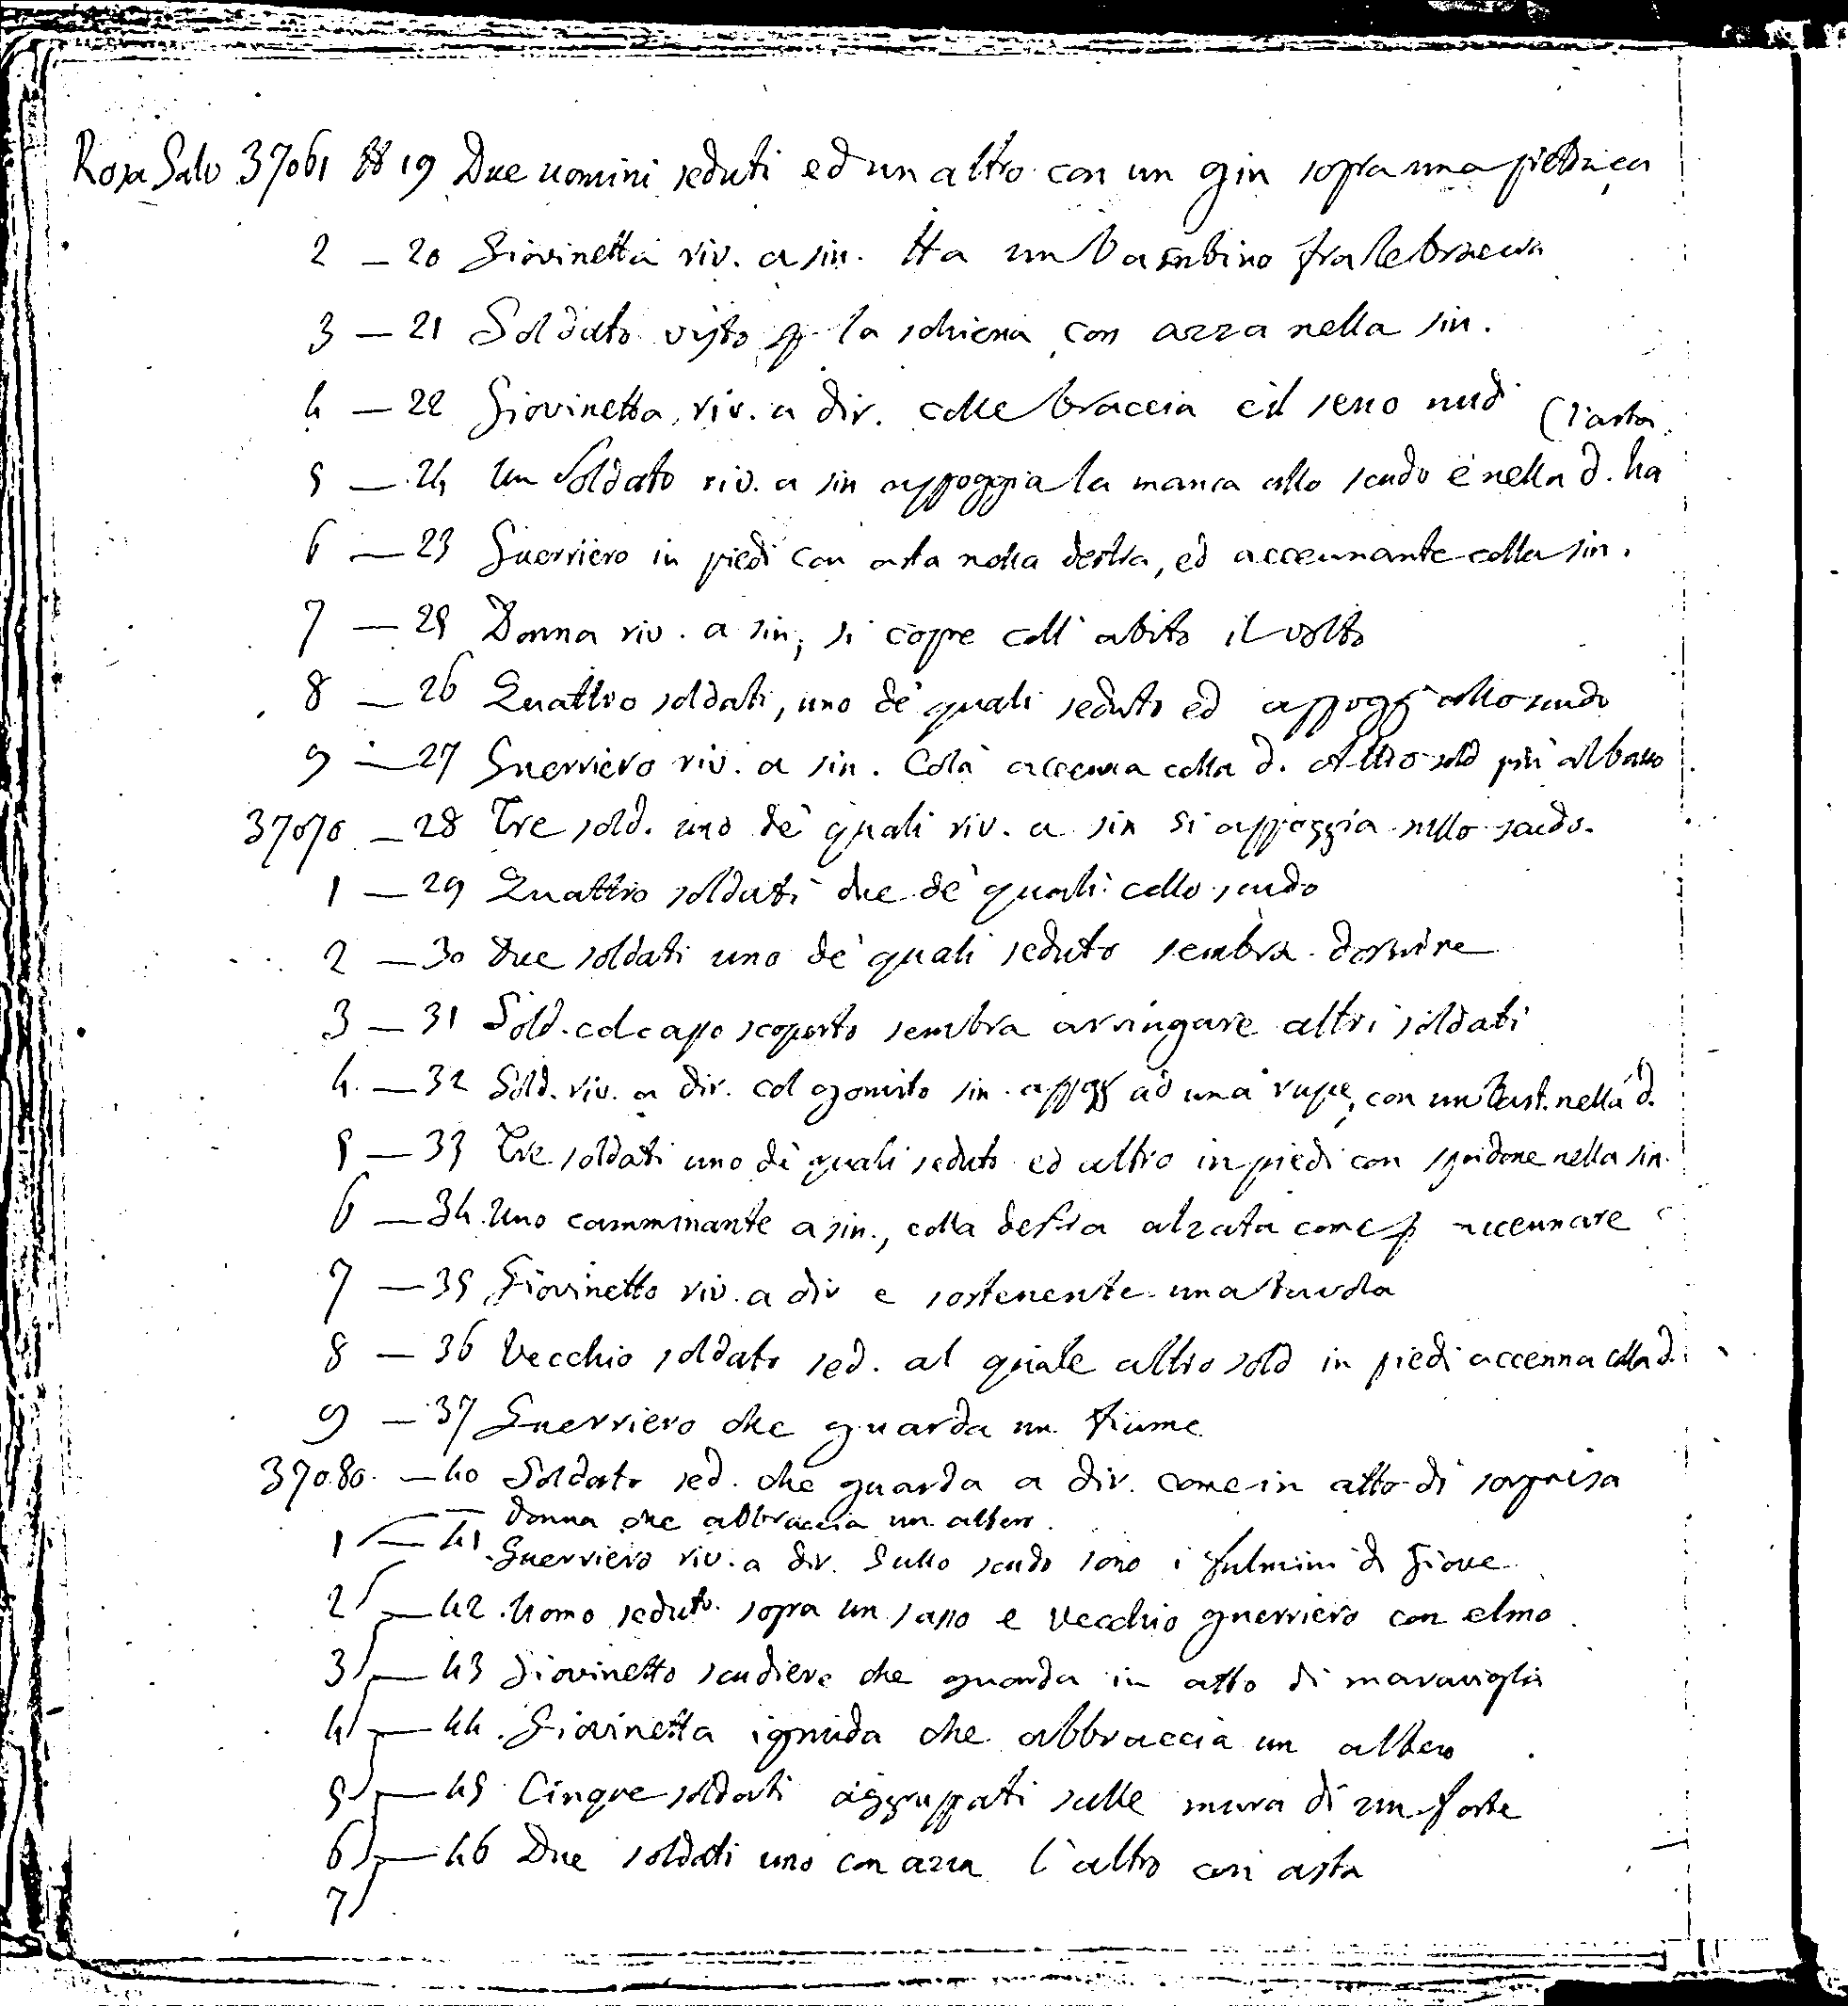 Rosa Salv 37061 19 Due uomini seduti ed un altro con un gin sopra una pietra
2 — 20 Giovinetta riv. a sin. Ha un bambino fra le braccia
3 — 21 Soldato visto p la schiena con azza nella sin.
4 — 22 Giovinetta riv. a dir. colle braccia e il seno nudi
(l'asta
5 — 24 Un Soldato riv. a sin appoggia la manca allo scudo e nella d. ha
6 — 23 Guerriero in piedi con asta nella destra, ed accennante colla sin.
7 — 25 Donna riv. a sin, si copre coll'abito il volto
8 — 26 Quattro soldati, uno de' quali seduto ed appogg allo scudo
9 — 27 Guerriero riv. a sin. Colà accenna colla d. Altro sold più al basso
37070 — 28 Tre sold. uno de' quali riv. a sin si appoggia sullo scudo.
1 — 29 Quattro soldati due de' quali collo scudo
2 — 30 Due soldati uno de' quali seduto sembra dormire
3 — 31 Sold. col capo scoperto sembra arringare altri soldati
4. — 32 Sold. riv. a dir. col gomito sin. appogg ad una rupe, con un bast. nella d.
5 — 33 Tre soldati uno de' quali seduto ed altro in piedi con spidone nella sin.
6 — 34. Uno camminante a sin., colla destra alzata come p accennare
7 — 35 Giovinetto riv. a dir e sostenente una tavola
8 — 36 Vecchio soldato sed. al quale altro sold in piedi accenna colla d.
9 — 37 Guerriero che guarda un fiume
37080. — 40 Soldato sed. che guarda a dir. come in atto di sorpresa
Donna che abbraccia un albero.
1 — 41. Guerriero riv. a dir. Sullo scudo sono i fulmini di Giove
2 — 42. Uomo seduto sopra un sasso e vecchio guerriero con elmo
3 — 43 Giovinetto scudiere che guarda in atto di maraviglia
4 — 44. Giovinetta ignuda che abbraccia un albero
5 — 45 Cinque soldati aggruppati sulle mura di un forte
6 — 46 Due soldati uno con azza l'altro con asta
7